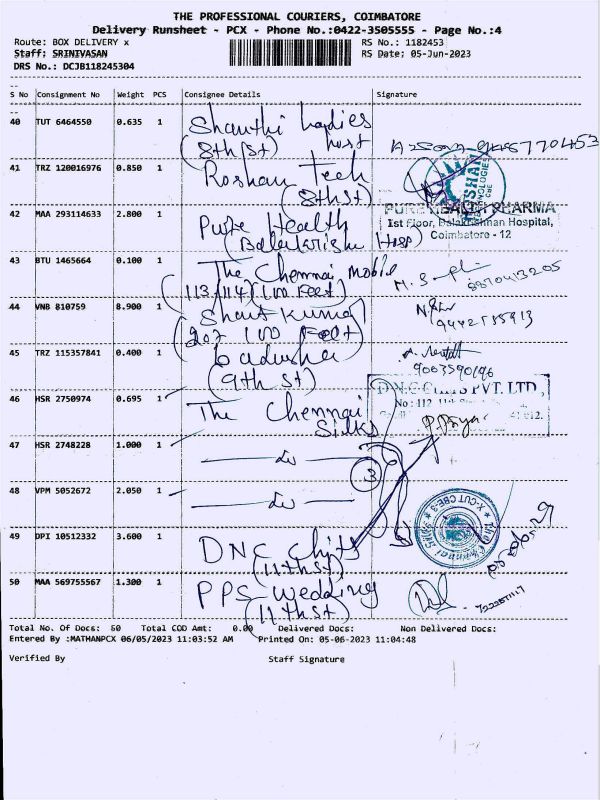 THE PROFESSIONAL COURIERS, COIMBATORE
Delivery Runsheet - PCX - Phone No.:0422-3505555 - Page No.:4
Route: BOX DELIVERY x
RS No.: 1182453
Staff: SRINIVASAN
RS Date: 05-Jun-2023
DRS No.: DCJB118245304
S No Consignment No Weight PCS Consignee Details Signature
40 TUT 6464550 0.635 1 Shanthi Ladies
(8th St)
41 TRZ 120016976 0.850 1 Roshan Tech
(8th St)
42 MAA 293114633 2.800 1 Pure Health
PURE HEALTH PHARMA
1st Floor, Balakrishnan Hospital,
Coimbatore - 12
43 BTU 1465664 0.100 1 The Chennai Mobile
(113/114) (100 Feet)
8870413205
44 VNB 810759 8.900 1
100 Feet)
45 TRZ 115357841 0.400 1
(9th St)
9003590696
46 HSR 2750974 0.695 1 The Chennai
Silks
DNC CHITS PVT. LTD.,
No: 112, 11th
P. Priya
47 HSR 2748228 1.000 1
3
48 VPM 5052672 2.050 1
49 DPI 10512332 3.600 1 DNC Chits
(11th St)
50 MAA 569755567 1.300 1 PPS Wedding
(11th St)
Total No. Of Docs: 50 Total COD Amt: 0.00 Delivered Docs: Non Delivered Docs:
Entered By :MATHANPCX 06/05/2023 11:03:52 AM Printed On: 05-06-2023 11:04:48
Verified By Staff Signature